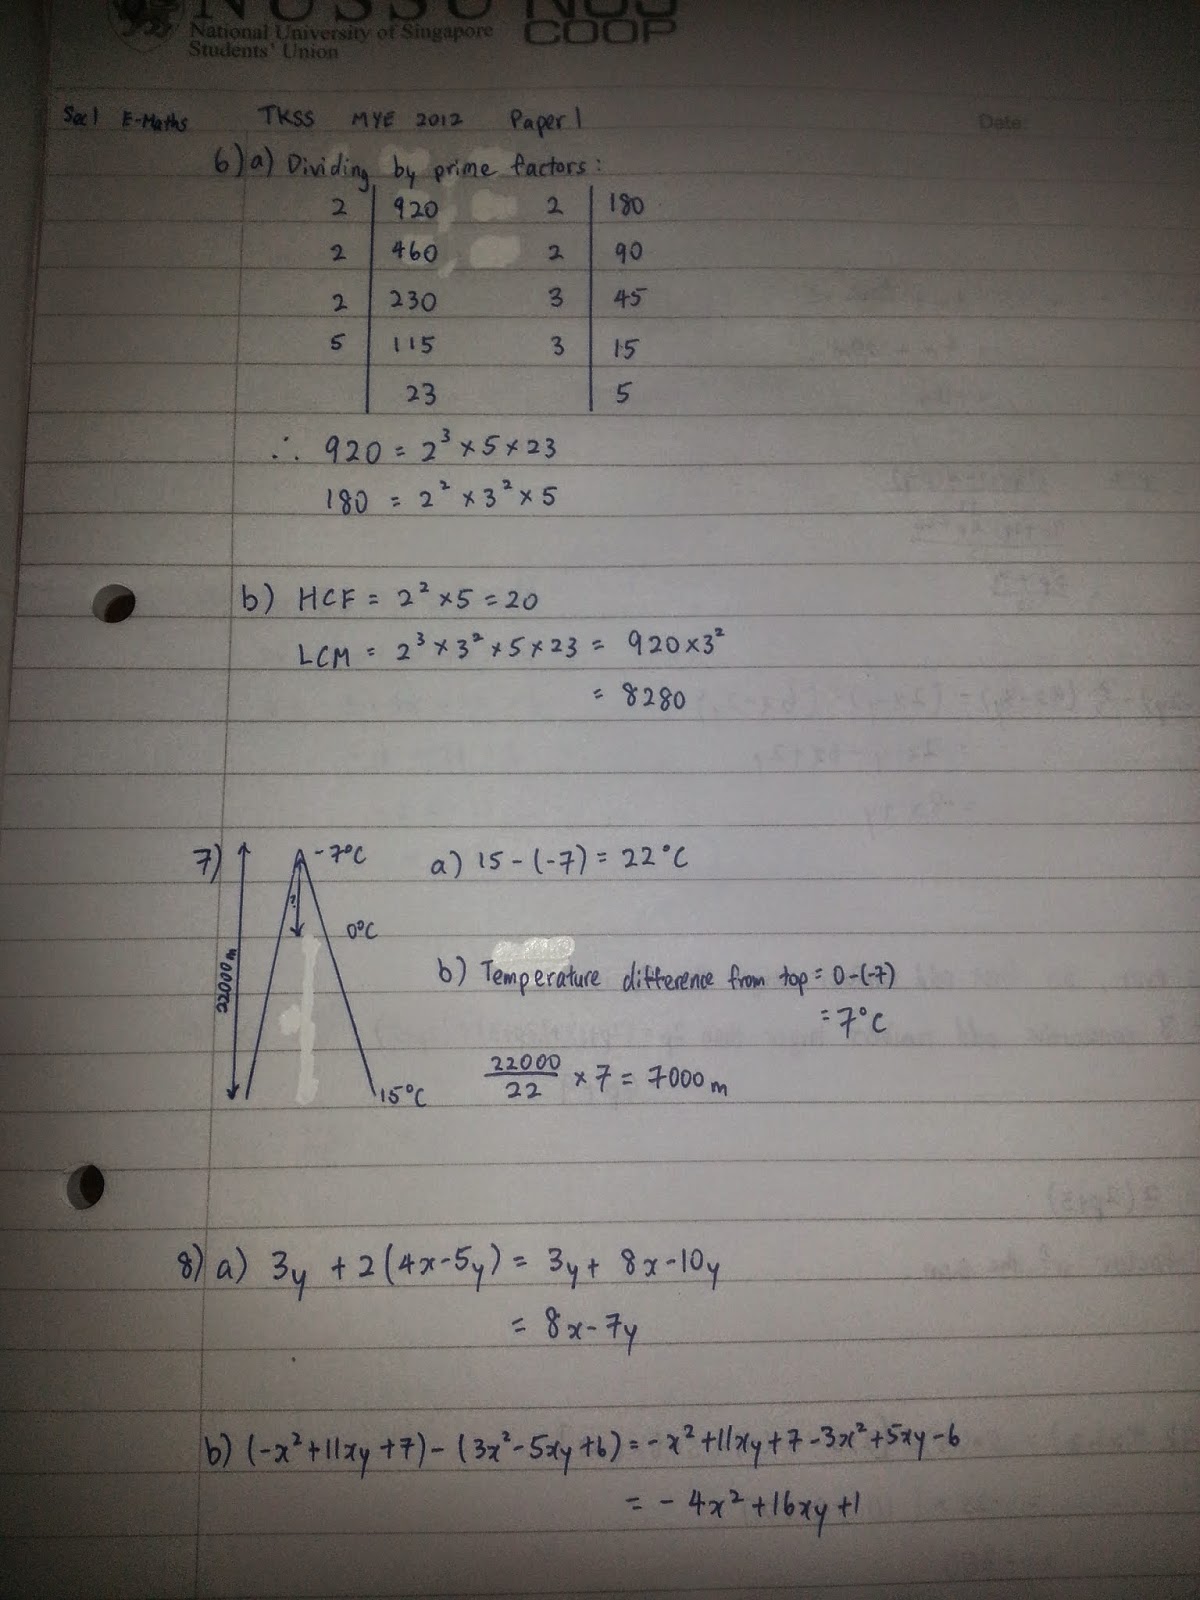 NUSSU NUS
National University of Singapore COOP
Students' Union
Date:
Sec 1 E-Maths TKSS MYE 2012 Paper 1
6) a) Dividing by prime factors:
2 | 920 2 | 180
2 | 460 2 | 90
2 | 230 3 | 45
5 | 115 3 | 15
| 23 | 5
∴ 920 = 2³ × 5 × 23
180 = 2² × 3² × 5
b) HCF = 2² × 5 = 20
LCM = 2³ × 3² × 5 × 23 = 920 × 3²
= 8280
7) -7°C a) 15 - (-7) = 22°C
?
0°C
22000m
b) Temperature difference from top = 0 - (-7)
= 7°C
22000/22 × 7 = 7000m
15°C
8) a) 3y + 2(4x - 5y) = 3y + 8x - 10y
= 8x - 7y
b) (-x² + 11xy + 7) - (3x² - 5xy + 6) = -x² + 11xy + 7 - 3x² + 5xy - 6
= -4x² + 16xy + 1